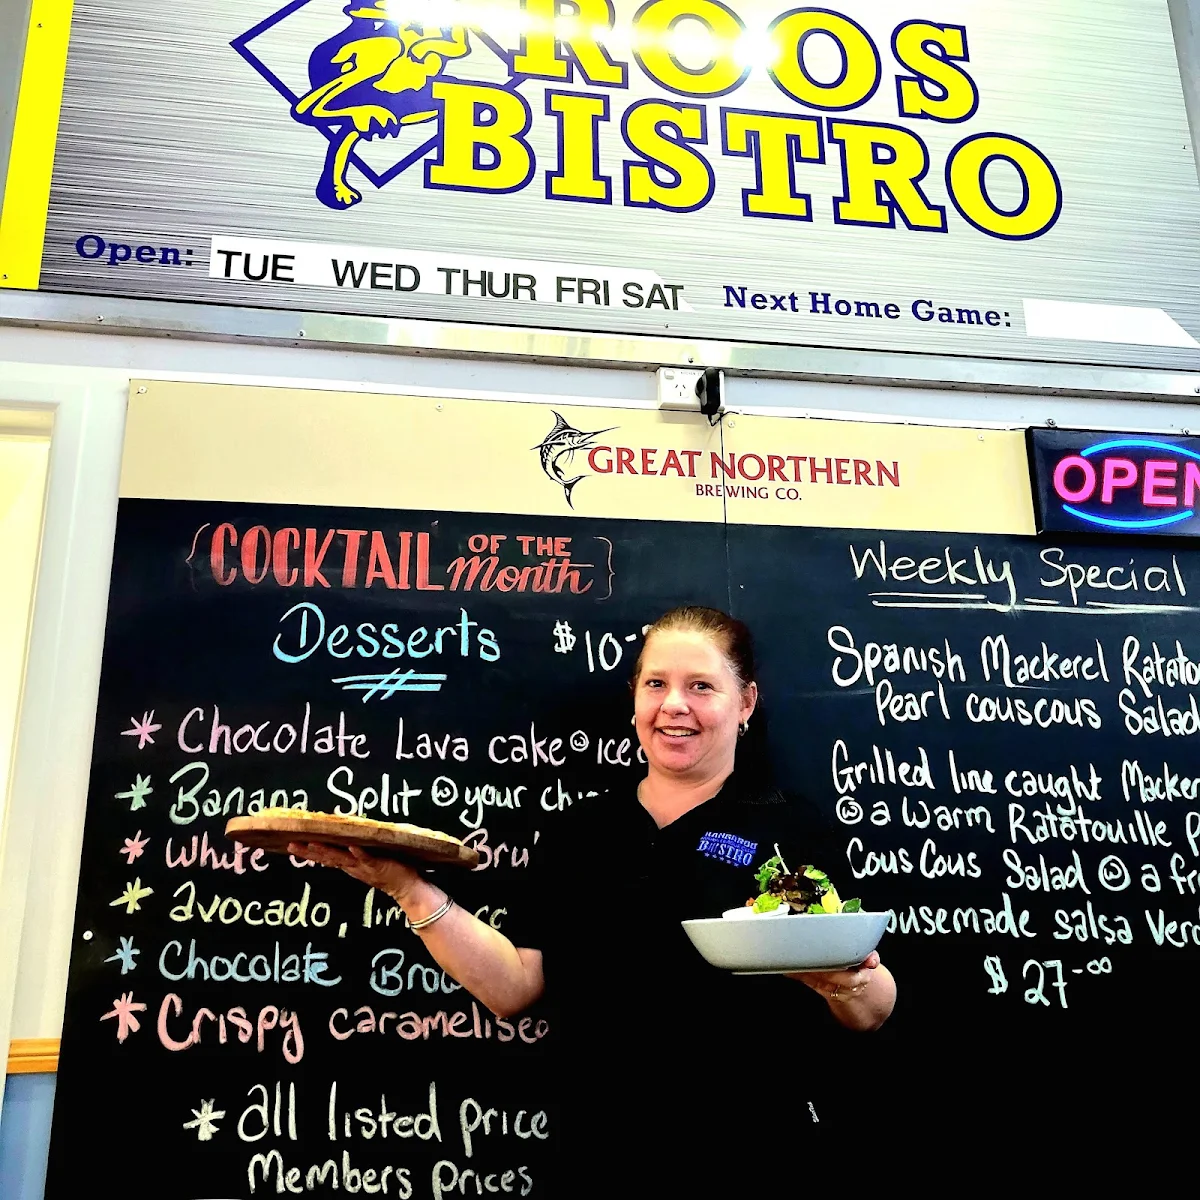 ROOS
BISTRO
Open: TUE WED THUR FRI SAT Next Home Game:
GREAT NORTHERN
BREWING CO.
OPEN
COCKTAIL OF THE Month
Desserts $10-
* Chocolate Lava cake ⓦ ice
* Banana Split ⓦ your
* White
* avocado,
* Chocolate
* Crispy caramelised
* all listed price
Members prices
Weekly Special
Spanish Mackerel
Pearl couscous Salad
Grilled line caught
ⓦ a Warm Ratatouille
Cous Cous Salad ⓦ a
salsa
$27-00
BISTRO